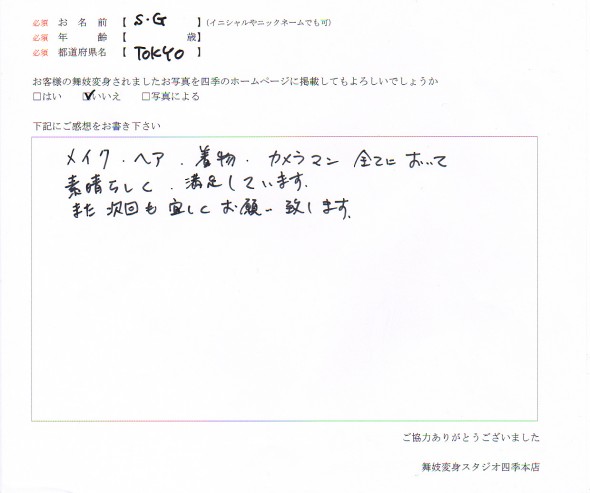 必須 お名前 【 S・G 】(イニシャルやニックネームでも可)
必須 年齢 【 歳】
必須 都道府県名 【 TOKYO 】
お客様の舞妓変身されましたお写真を四季のホームページに掲載してもよろしいでしょうか
□はい ☑いいえ □写真による
下記にご感想をお書き下さい
メイク・ヘア・着物・カメラマン 全てにおいて
素晴らしく、満足しています。
また次回も宜しくお願い致します。
ご協力ありがとうございました
舞妓変身スタジオ四季本店